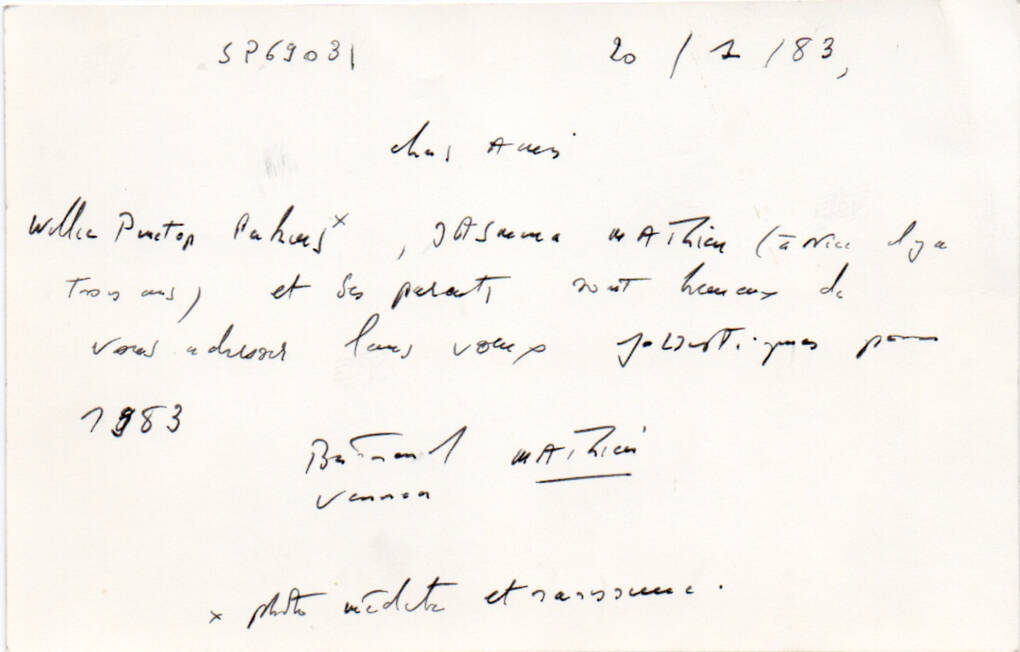 SP69031 20 / 1 / 83,
chers Amis
Willie Pinetop Perkins x, JASmina mAThieu (à Nice il y a
trois ans) et ses parents sont heureux de
vous adresser leurs voeux jazzistiques pour
1983
Bertrand mAThieu
x photo inédite et rarissime.